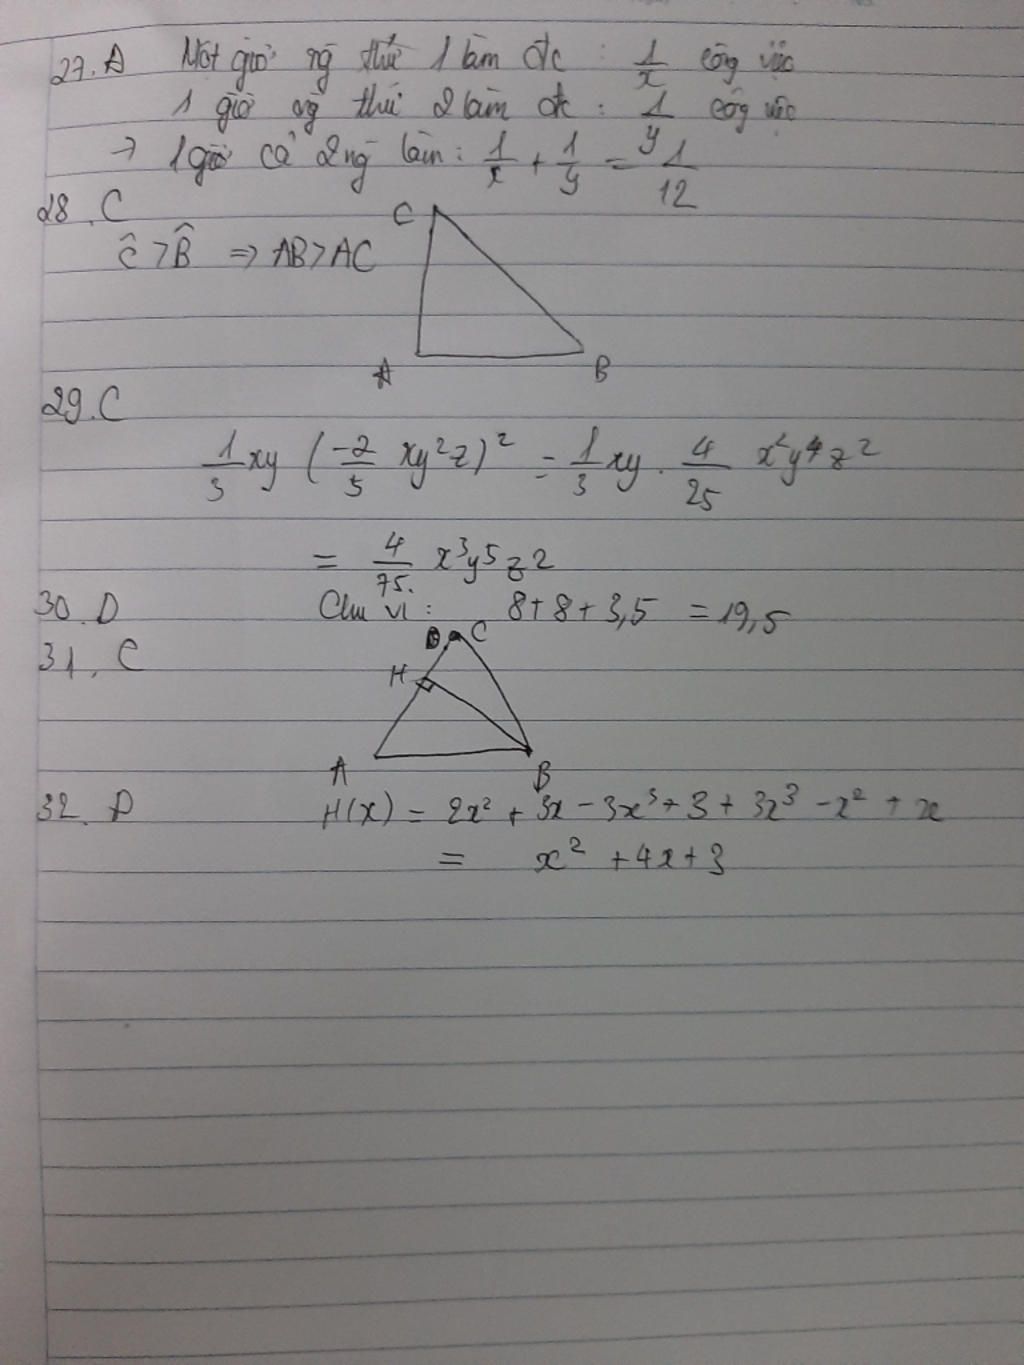 27. A Một giờ ng thứ 1 làm đc : 1/x công việc
1 giờ ng thứ 2 làm đc : 1/y công việc
→ 1 giờ cả 2 ng làm : 1/x + 1/y = 1/12
28. C
C
Ĉ > B̂ ⇒ AB > AC
A B
29. C
1/3 xy (-2/5 xy²z)² = 1/3 xy . 4/25 x²y⁴z²
= 4/75 x³y⁵z²
30. D Chu vi : 8 + 8 + 3,5 = 19,5
31. C
C
H
A B
32. A H(x) = 2x² + 3x - 3x³ + 3 + 3x³ - x² + x
= x² + 4x + 3